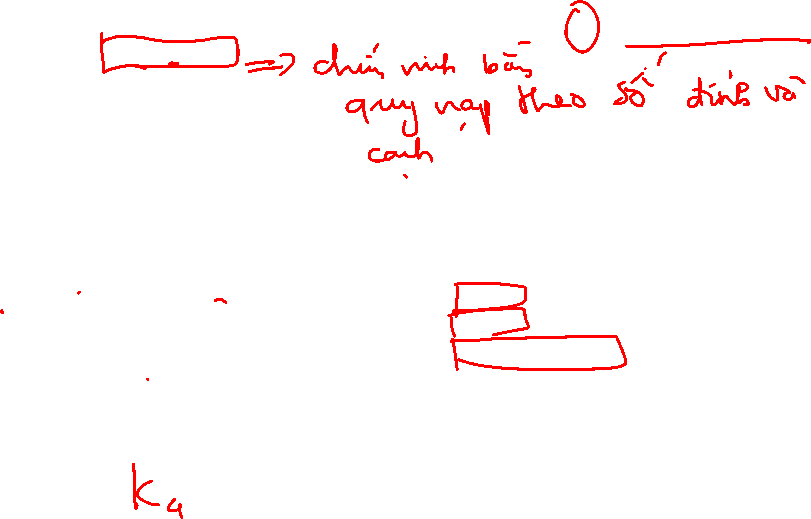 ⇒ chứng minh bằng
quy nạp theo số đỉnh và
cạnh
K₄